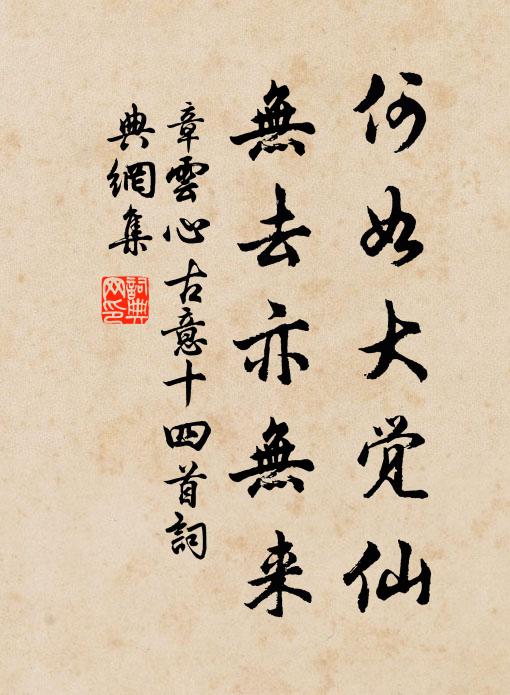 何如大觉仙
無去亦無来
章雲心古意十四首詞
典網集
詞典
网印